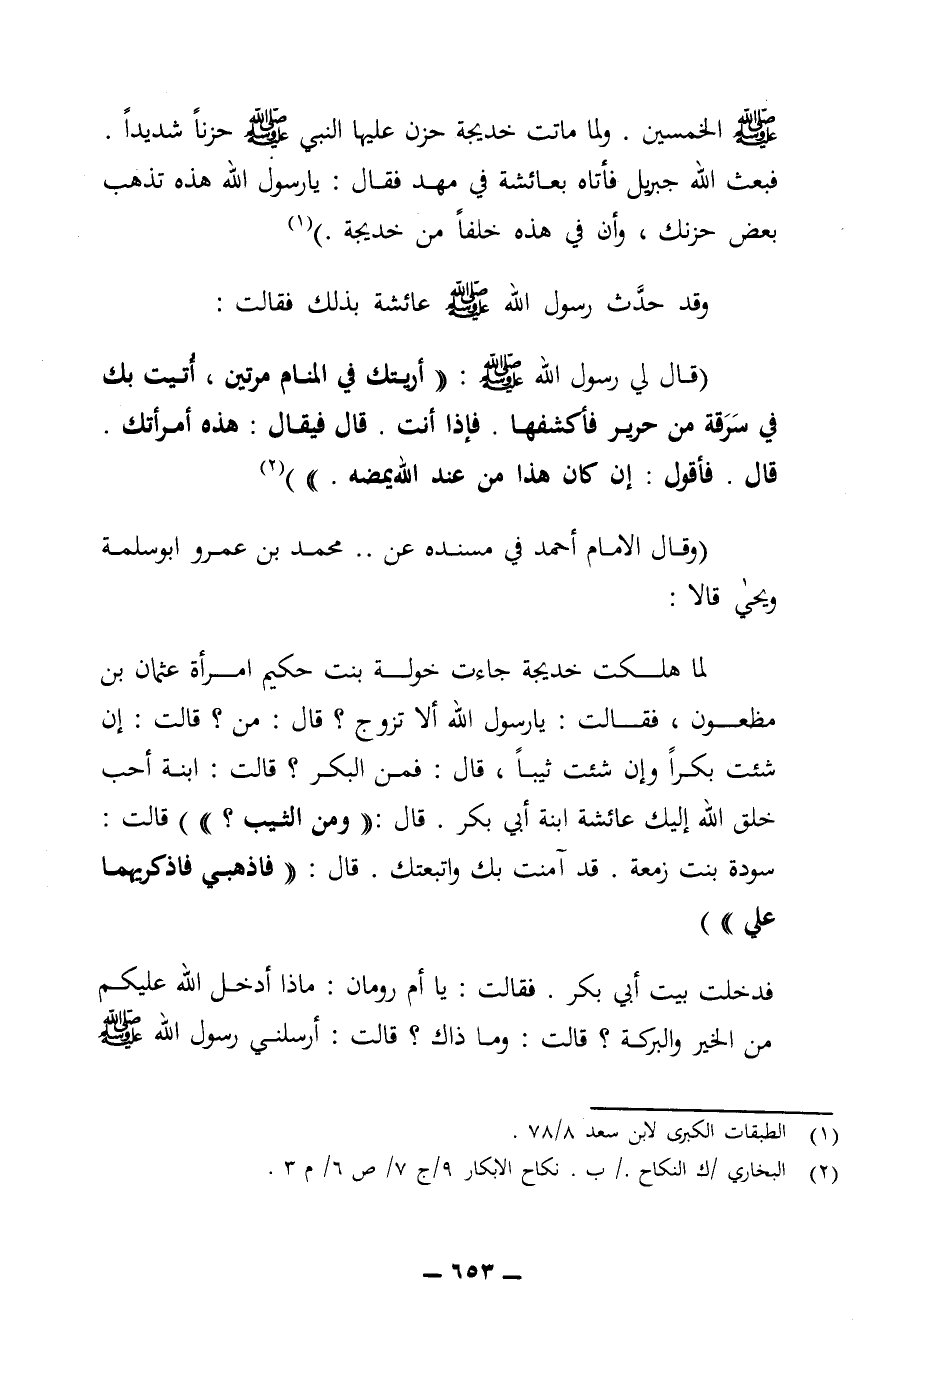 ﷺ الخمسين . ولما ماتت خديجة حزن عليها النبي ﷺ حزناً شديداً .
فبعث الله جبريل فأتاه بعائشة في مهد فقال : يارسول الله هذه تذهب
بعض حزنك ، وأن في هذه خلفاً من خديجة .)(١)
وقد حدَّث رسول الله ﷺ عائشة بذلك فقالت :
(قال لي رسول الله ﷺ : « أريتك في المنام مرتين ، أُتيت بك
في سَرَقة من حرير فأكشفها . فإذا أنت . قال فيقال : هذه أمرأتك .
قال . فأقول : إن كان هذا من عند الله يمضه . » )(٢)
(وقال الامام أحمد في مسنده عن .. محمد بن عمرو ابوسلمة
ويحيٰ قالا :
لما هلكت خديجة جاءت خولة بنت حكيم امرأة عثمان بن
مظعون ، فقالت : يارسول الله ألا تزوج ؟ قال : من ؟ قالت : إن
شئت بكراً وإن شئت ثيباً ، قال : فمن البكر ؟ قالت : ابنة أحب
خلق الله إليك عائشة ابنة أبي بكر . قال :« ومن الثيب ؟ » ) قالت :
سودة بنت زمعة . قد آمنت بك واتبعتك . قال : « فاذهبي فاذكريهما
علي » )
فدخلت بيت أبي بكر . فقالت : يا أم رومان : ماذا أدخل الله عليكم
من الخير والبركة ؟ قالت : وما ذاك ؟ قالت : أرسلني رسول الله ﷺ
(١) الطبقات الكبرى لابن سعد ٧٨/٨ .
(٢) البخاري /ك النكاح ./ ب . نكاح الابكار ٩/ج ٧/ ص ٦/ م ٣ .
ـ ٦٥٣ ـ